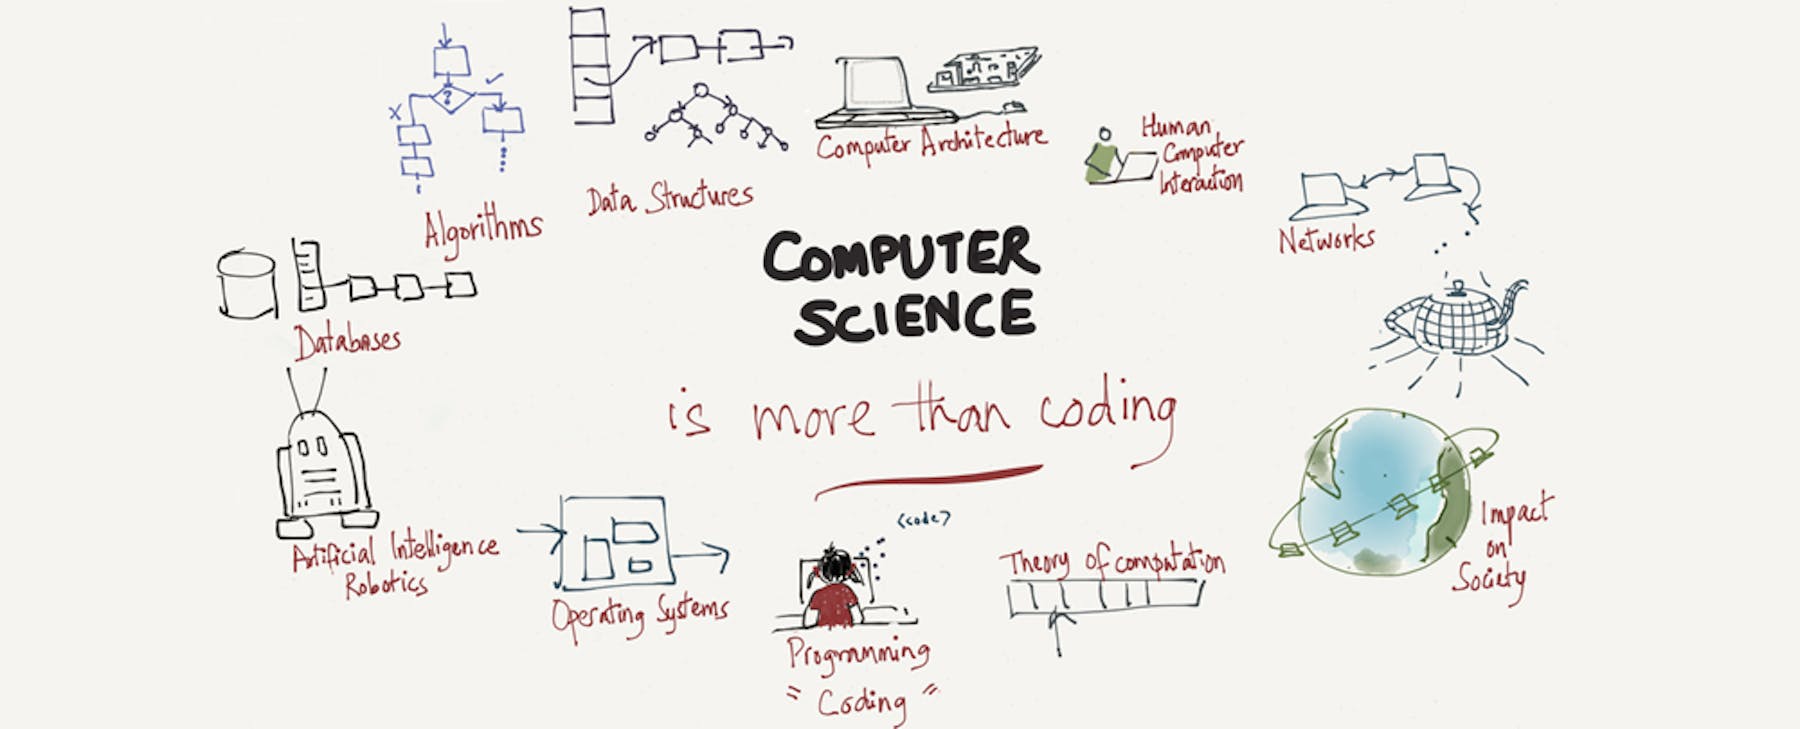 Algorithms
Data Structures
Computer Architecture
Human
Computer
Interaction
Networks
COMPUTER
SCIENCE
is more than coding
Databases
Artificial Intelligence
Robotics
Operating Systems
<code>
Programming
"Coding"
Theory of computation
Impact
on
Society
?
X